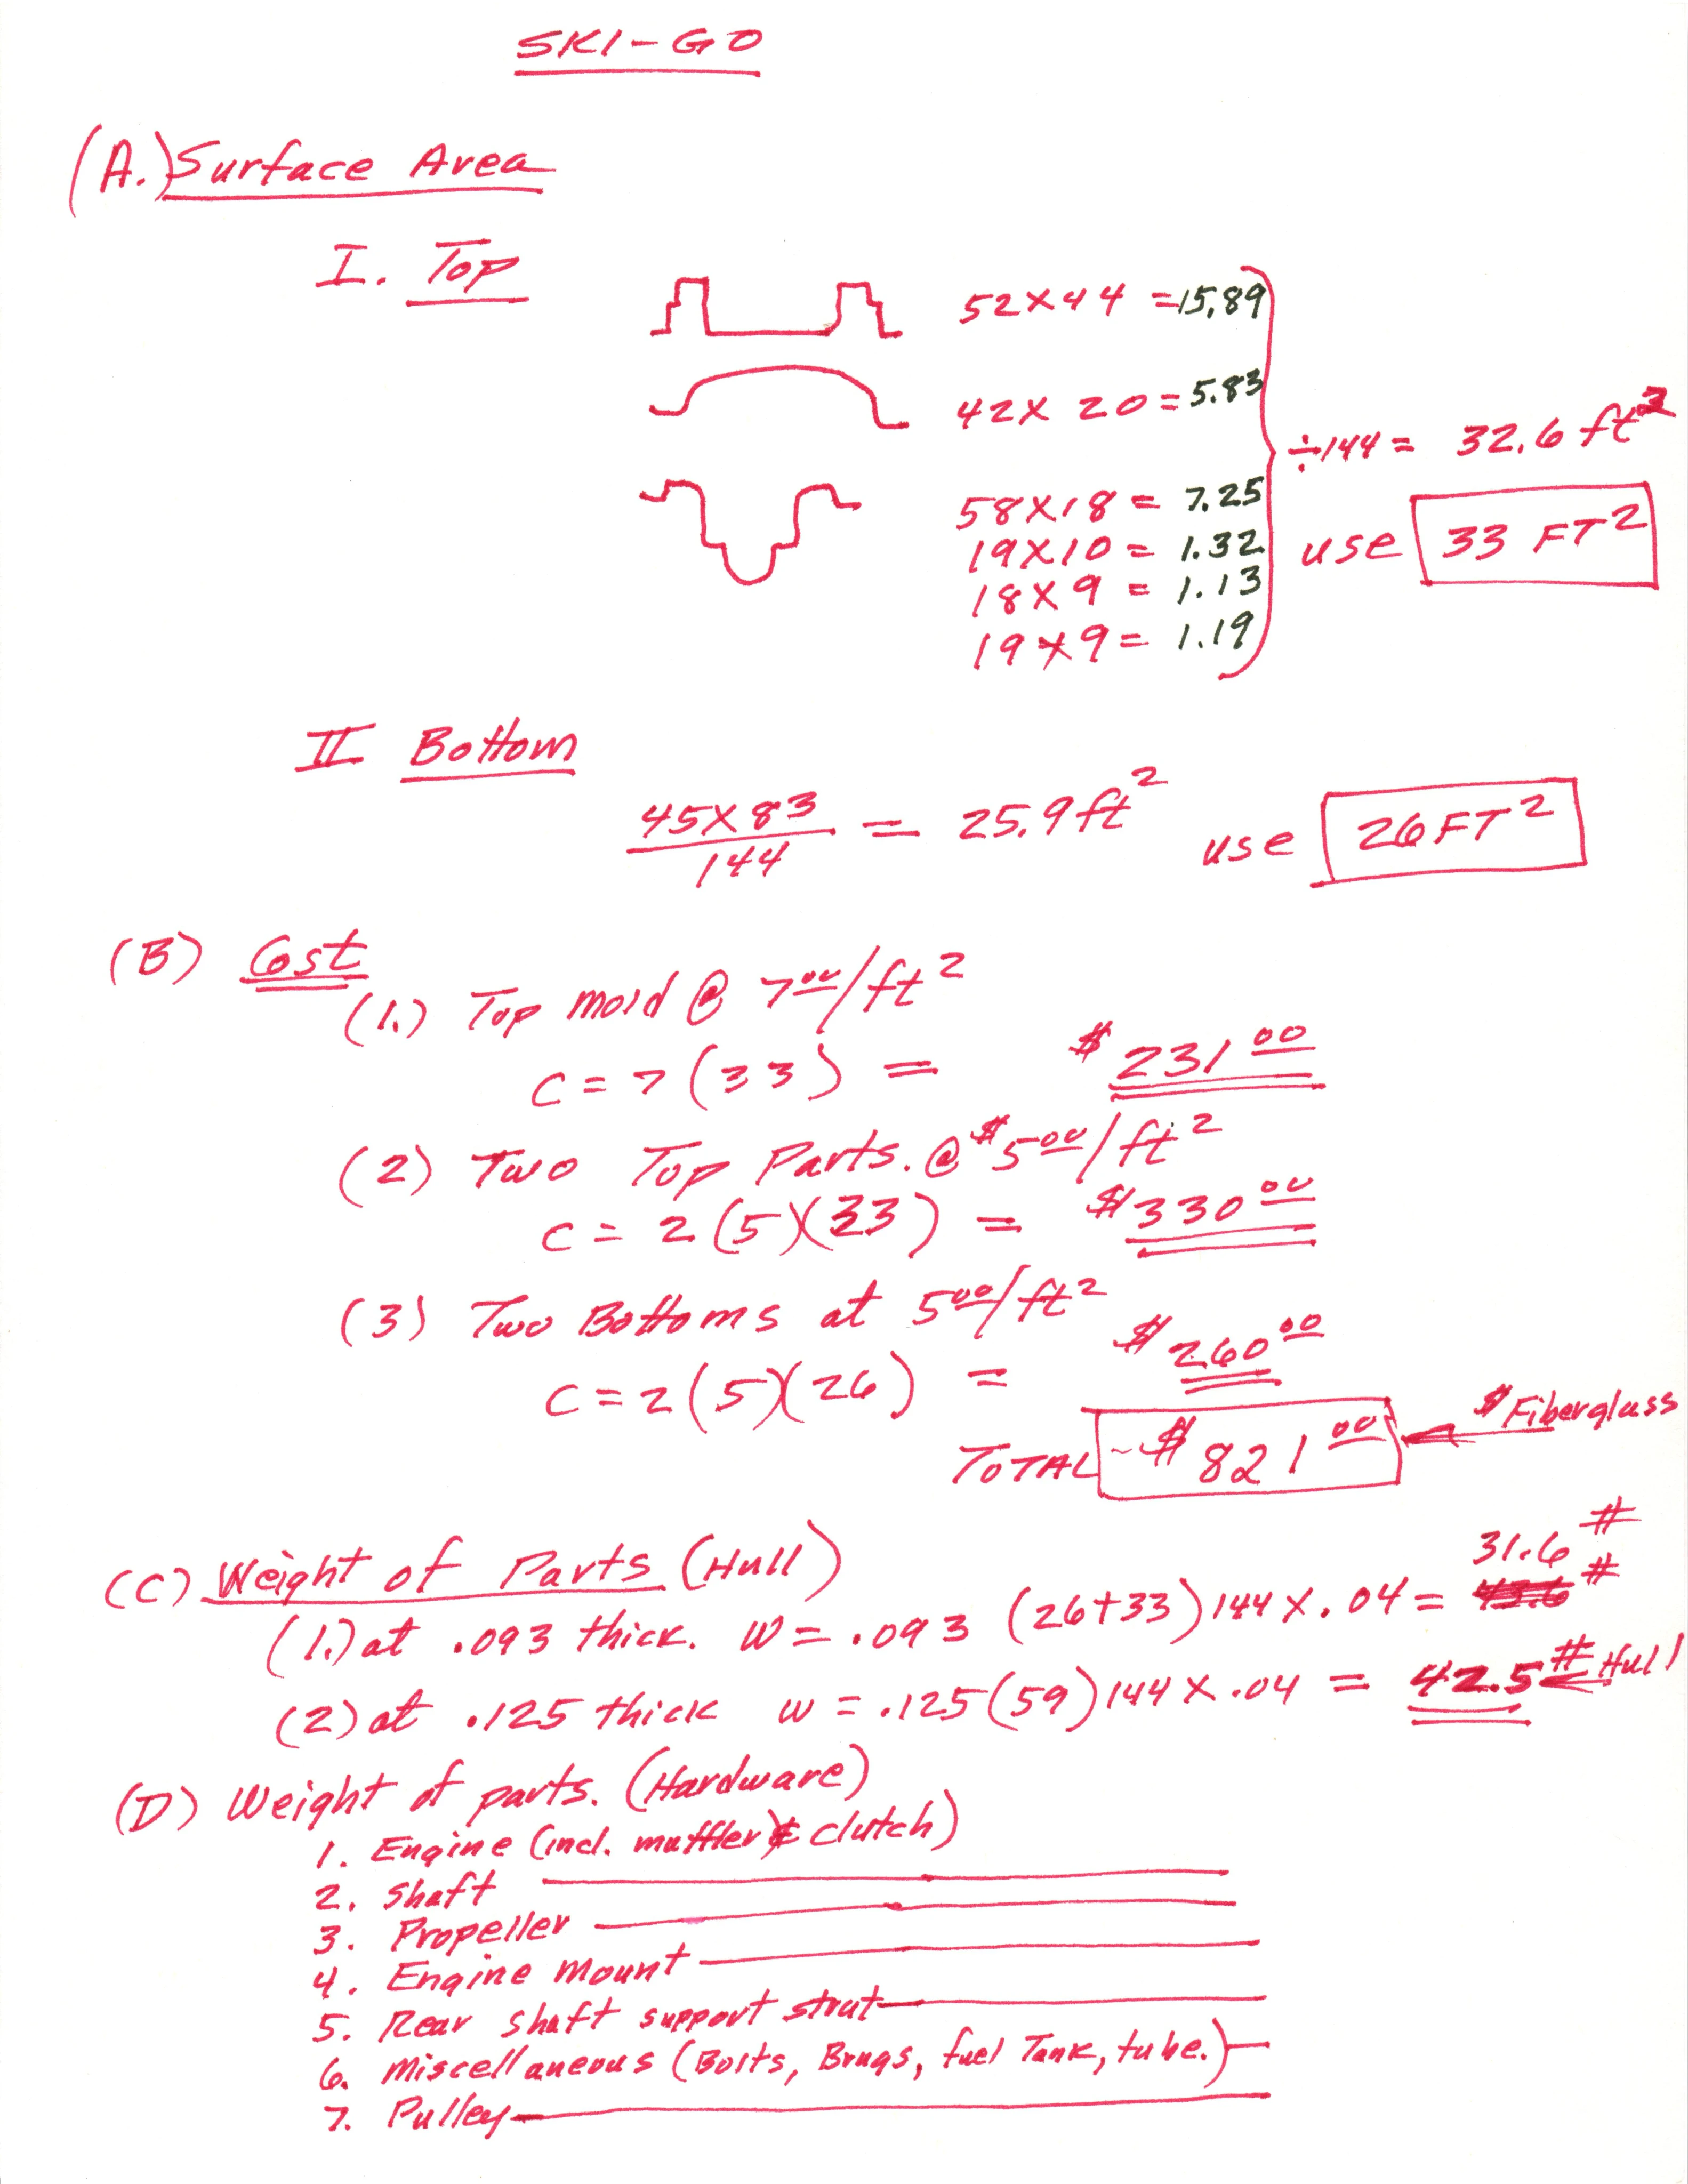 SKI-GO
(A.) Surface Area
I. Top
52 X 44 = 15.89
42 X 20 = 5.83
58 X 18 = 7.25
19 X 10 = 1.32
18 X 9 = 1.13
19 X 9 = 1.19
÷144 = 32.6 ft²
use 33 FT²
II Bottom
45 X 83 / 144 = 25.9 ft²
use 26 FT²
(B) Cost
(1.) Top mold @ 7⁰⁰/ft²
C = 7 (33) = $231⁰⁰
(2) Two Top Parts. @ $5⁰⁰/ft²
C = 2 (5)(33) = $330⁰⁰
(3) Two Bottoms at 5⁰⁰/ft²
C = 2 (5)(26) = $260⁰⁰
TOTAL ~ $821⁰⁰ $ Fiberglass
(C) Weight of Parts (Hull)
31.6 #
(1.) at .093 thick. W = .093 (26+33) 144 X .04 = #
(2) at .125 thick w = .125 (59) 144 X .04 = 42.5 # Hull
(D) Weight of parts. (Hardware)
1. Engine (incl. muffler) & clutch)
2. Shaft
3. Propeller
4. Engine mount
5. Rear shaft support strut
6. Miscellaneous (Bolts, Brngs, fuel Tank, tube.)
7. Pulley